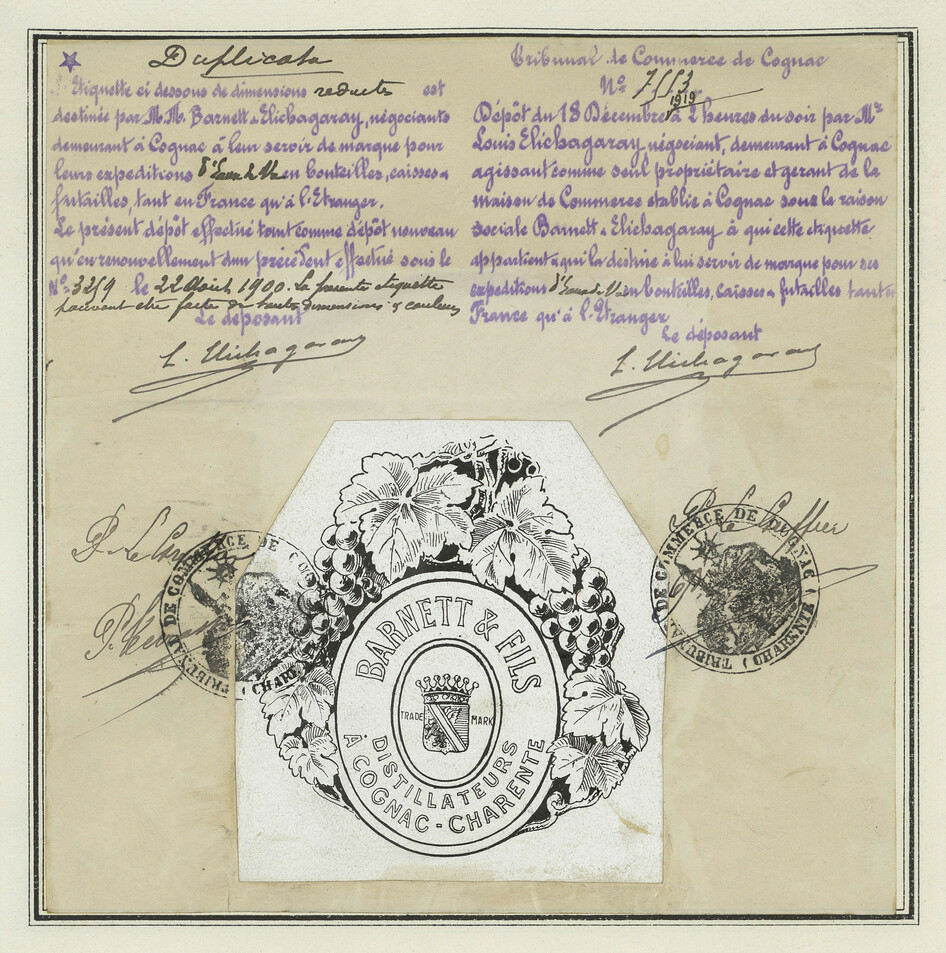 Duplicata
L'Etiquette ci dessous de dimensions reduites est
destinée par M.M. Barnett & Elichagaray, négociants
demeurant à Cognac à leur servir de marque pour
leurs expeditions d'Eaux de Vie en bouteilles, caisses &
futailles, tant en France qu'à l'Etranger.
Le présent dépôt effectué tant comme dépôt nouveau
qu'en renouvellement d'un précédent effectué sous le
N° 3259 le 22 Août 1900. La presente etiquette
pouvant etre faite de toutes dimensions & couleurs
Le déposant
L. Elichagaray
Tribunal de Commerce de Cognac
N° 7553
1919
Dépôt du 18 Décembre à 2 heures du soir par Mr
Louis Elichagaray négociant, demeurant à Cognac
agissant comme seul propriétaire et gerant de la
maison de Commerce etablie à Cognac sous la raison
sociale Barnett & Elichagaray à qui cette etiquette
appartient & qui la destine à lui servir de marque pour ses
expeditions d'Eaux de Vie en bouteilles, caisses & futailles tant en
France qu'à l'Etranger
Le déposant
L. Elichagaray
P. Le
TRIBUNAL DE COMMERCE DE CO
(CHARE
P. Le Greffier
TRIBUNAL DE COMMERCE DE COGNAC
(CHARENTE)
BARNETT & FILS
TRADE MARK
DISTILLATEURS
À COGNAC - CHARENTE